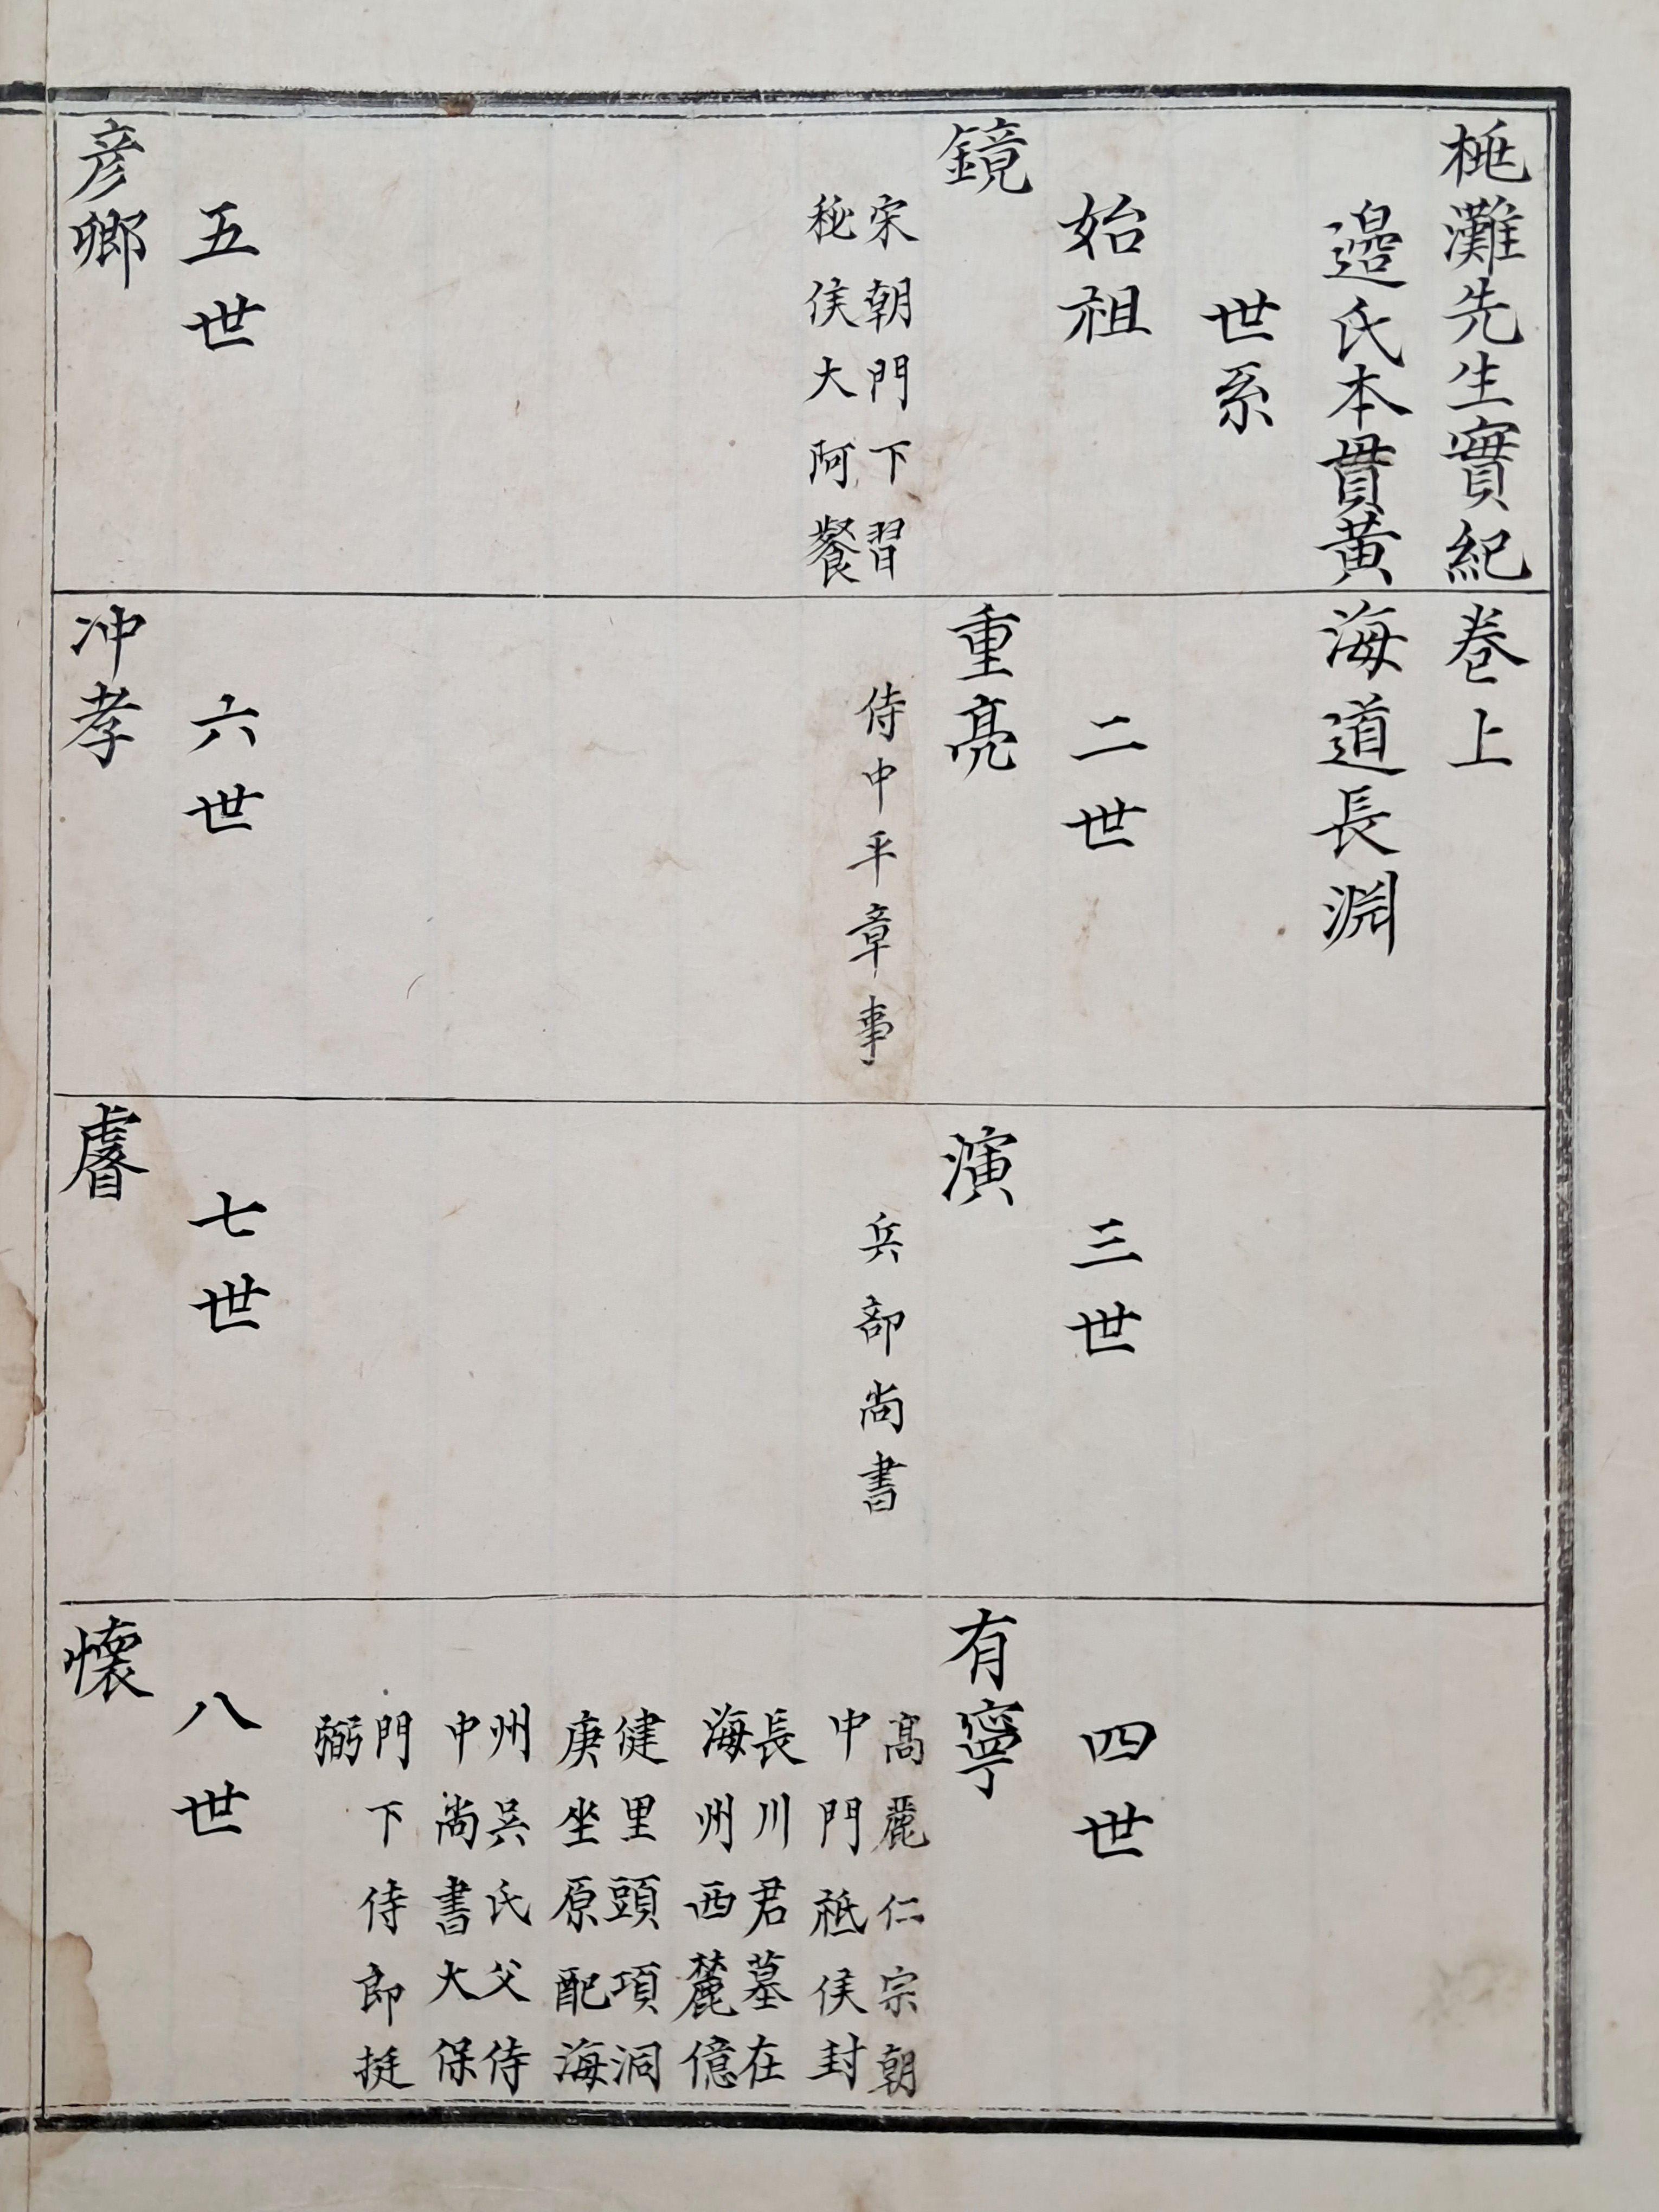 桃灘先生實紀卷上
邊氏本貫黃海道長淵
世系
始祖
鏡
宋朝門下習
秘侯大阿餐
二世
重亮
侍中平章事
三世
演
兵部尚書
四世
有寧
高麗仁宗朝
中門祗侯封
長川君墓在
海州西麓億
健里頭項洞
庚坐原配海
州吳氏父侍
中尚書大保
門下侍郎挺
弼
五世
彦鄕
六世
冲孝
七世
睿
八世
懷